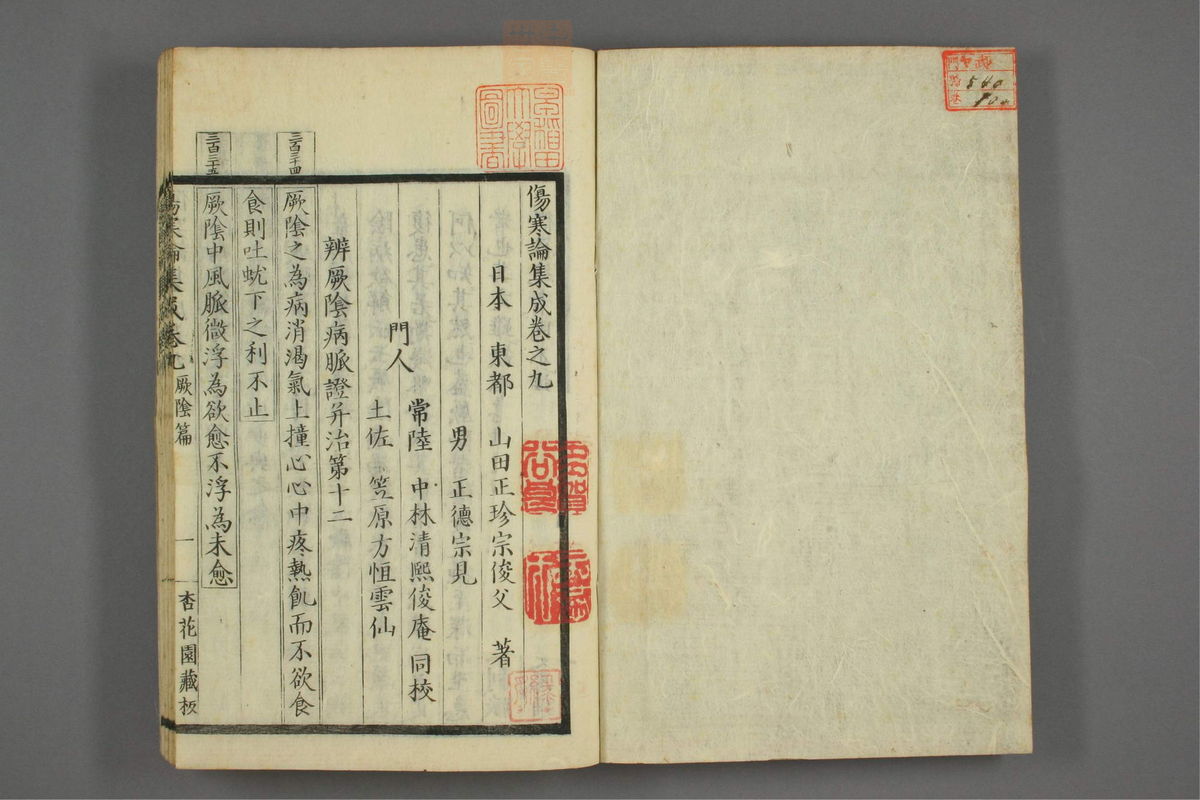 傷寒論集成卷之九
日本 東都 山田正珍宗俊父 著
男 正德宗見
門人 常陸 中林清熙俊庵 同校
土佐 笠原方恒雲仙
辨厥陰病脈證并治第十二
三百三十四
厥陰之為病消渴氣上撞心心中疼熱飢而不欲食
食則吐蚘下之利不止
三百三十五
厥陰中風脈微浮為欲愈不浮為未愈
傷寒論集成卷九 厥陰篇 一 杏花園藏板
540